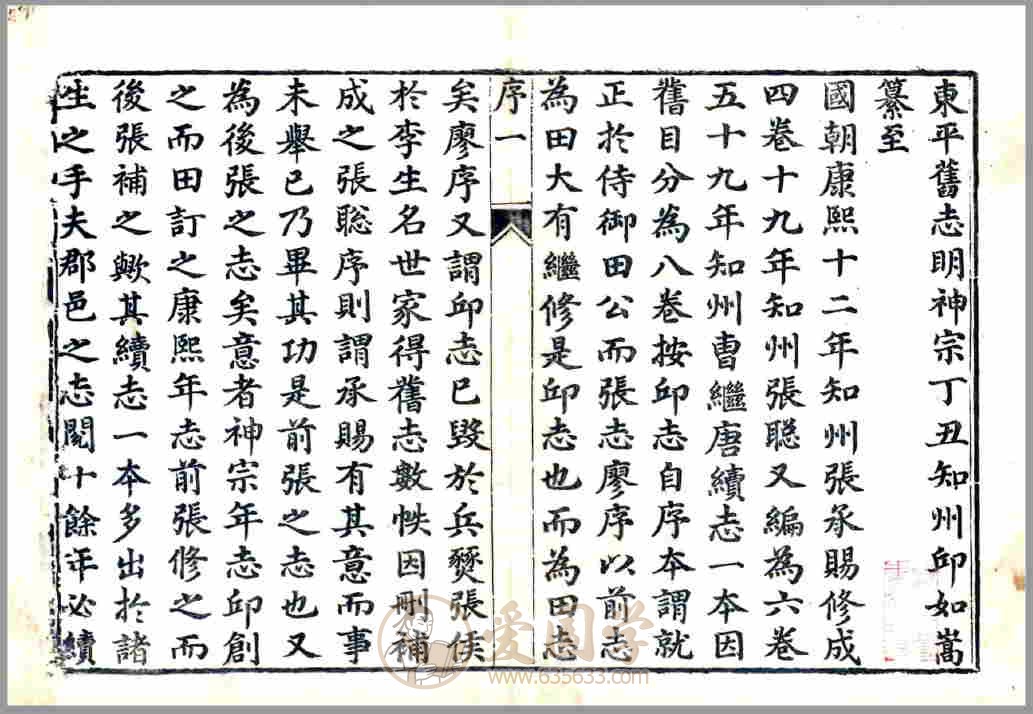 東平舊志明神宗丁丑知州邱如嵩
纂至
國朝康熙十二年知州張承賜修成
四卷十九年知州張聰又編為六卷
五十九年知州曹繼唐續志一本因
舊目分為八卷按邱志自序本謂就
正於侍御田公而張志廖序以前志
為田大有繼修是邱志也而為田志
序一
矣廖序又謂邱志已毀於兵燹張侯
於李生名世家得舊志數帙因刪補
成之張聡序則謂承賜有其意而事
未舉已乃畢其功是前張之志也又
為後張之志矣意者神宗年志邱創
之而田訂之康熙年志前張修之而
後張補之歟其續志一本多出於諸
生之手夫郡邑之志閱十餘年必續
爱国学
www.635633.com